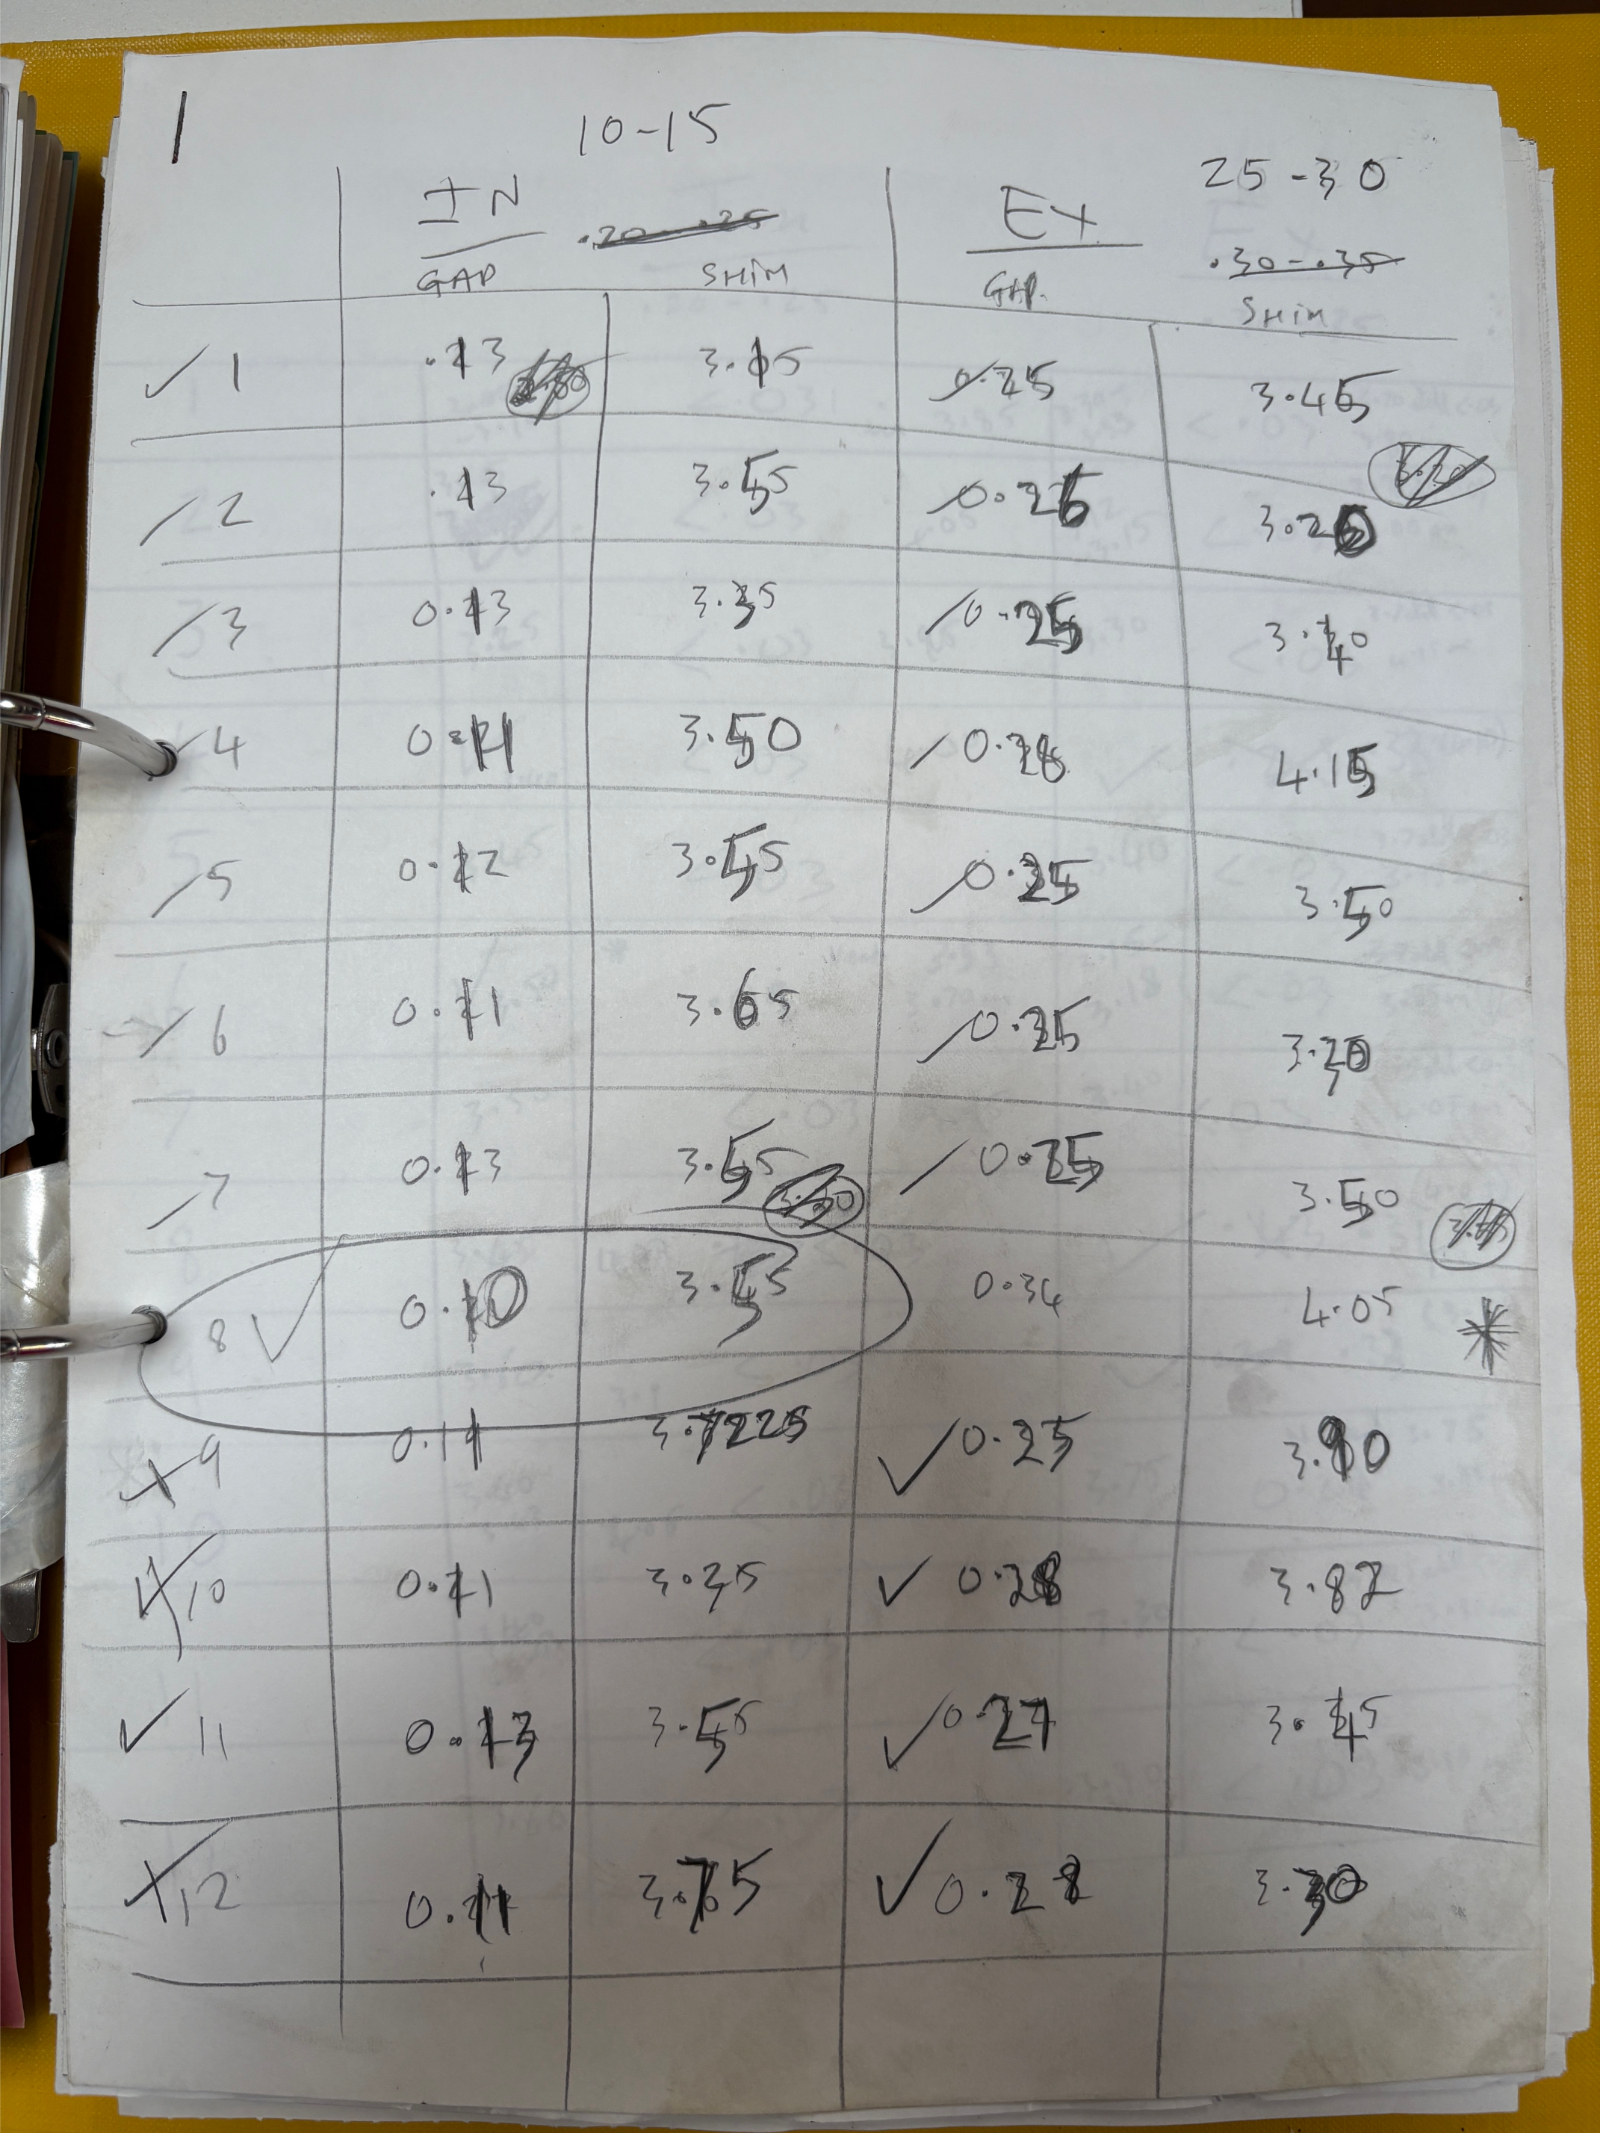 1
10-15
25-30
IN .20-.25 EX .30-.35
GAP SHIM GAP. SHIM
1 .13 3.15 0.25 3.45
2 .13 3.55 0.26 3.20
3 0.13 3.35 0.25 3.40
4 0.11 3.50 0.28 4.15
5 0.12 3.55 0.25 3.50
6 0.11 3.65 0.25 3.30
7 0.13 3.55 0.25 3.50
8 0.10 3.55 0.34 4.05 *
9 0.11 3.7225 0.25 3.90
10 0.11 3.35 0.28 3.82
11 0.13 3.55 0.27 3.45
12 0.11 3.75 0.28 3.30